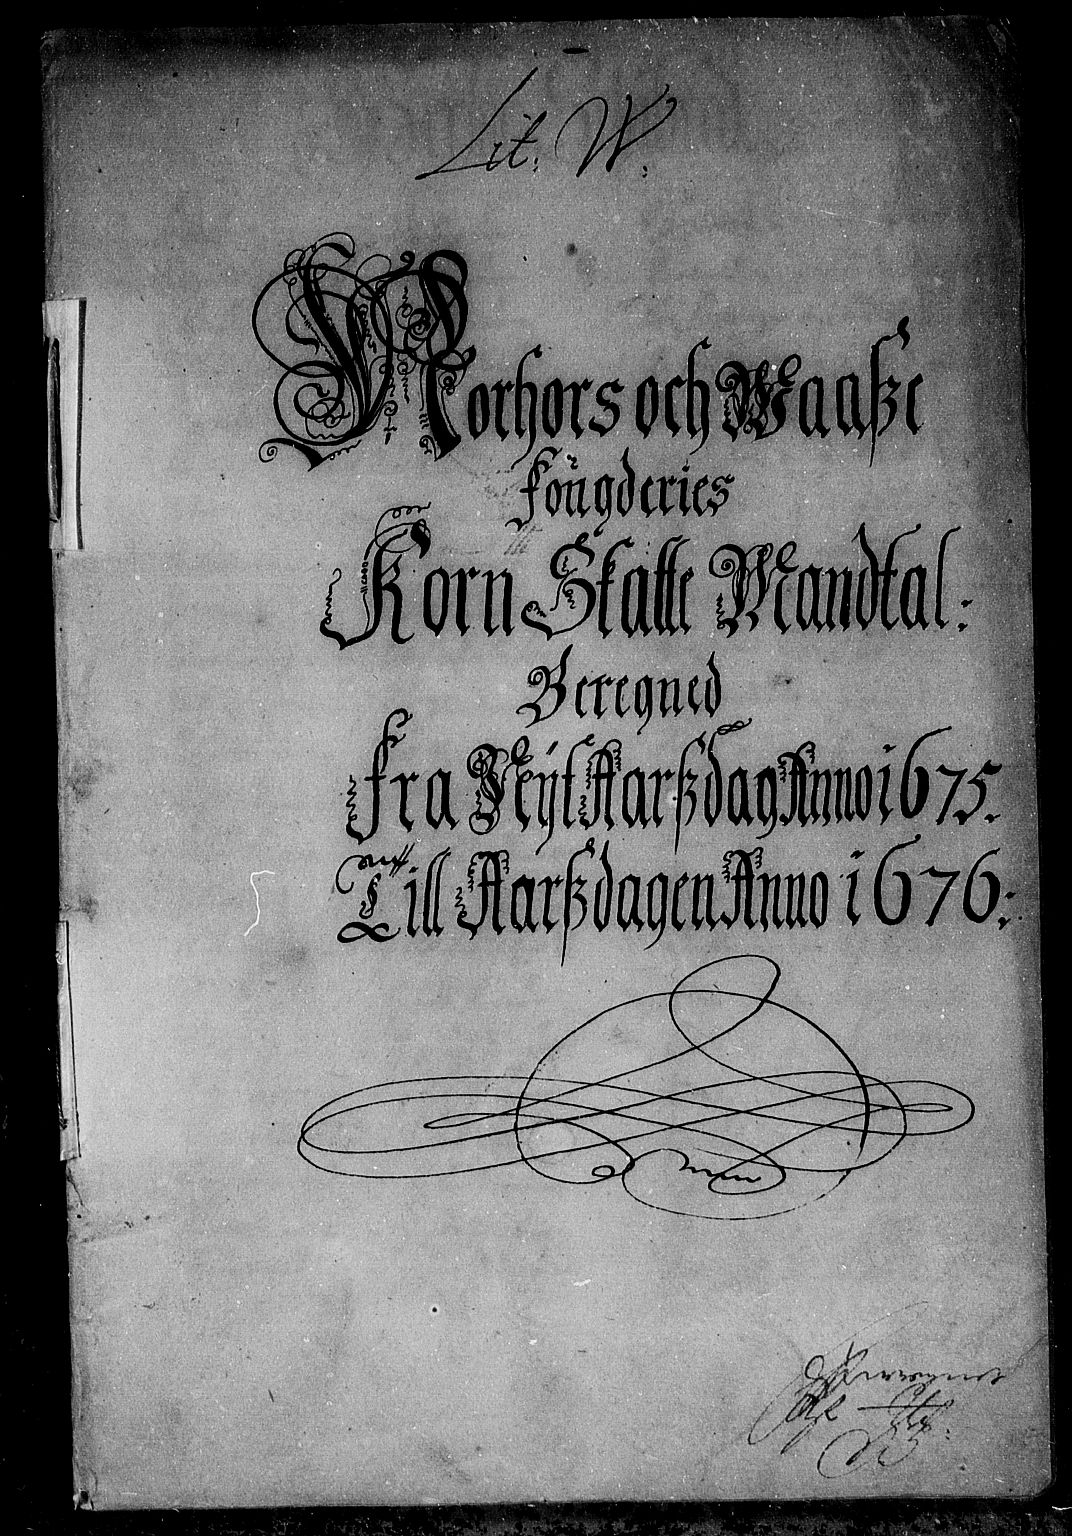 Lit: W:
Norhors och Waasze
fougderies
Korn Skatte Mandtal:
Beregned
fra Nyt Aarszdag Anno 1675.
Till Aarszdagen Anno 1676: